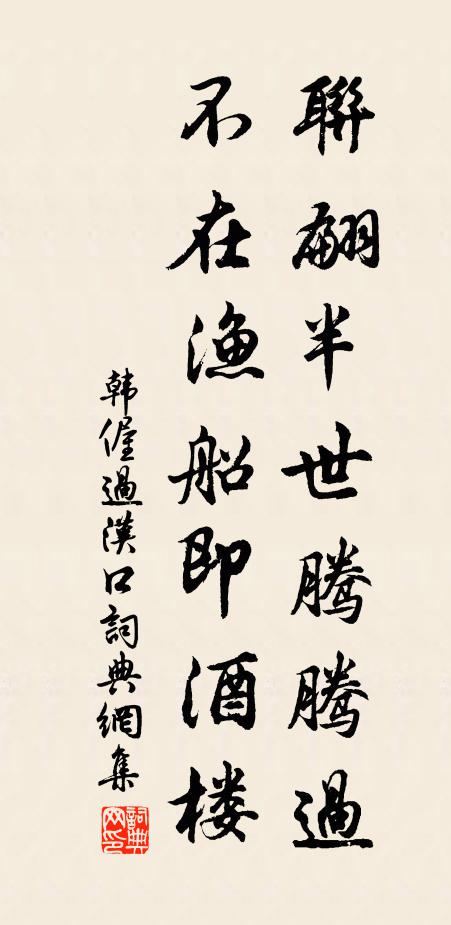 聯翩半世騰騰過
不在漁船即酒楼
韩偓過漢口詞典網集
詞典网印